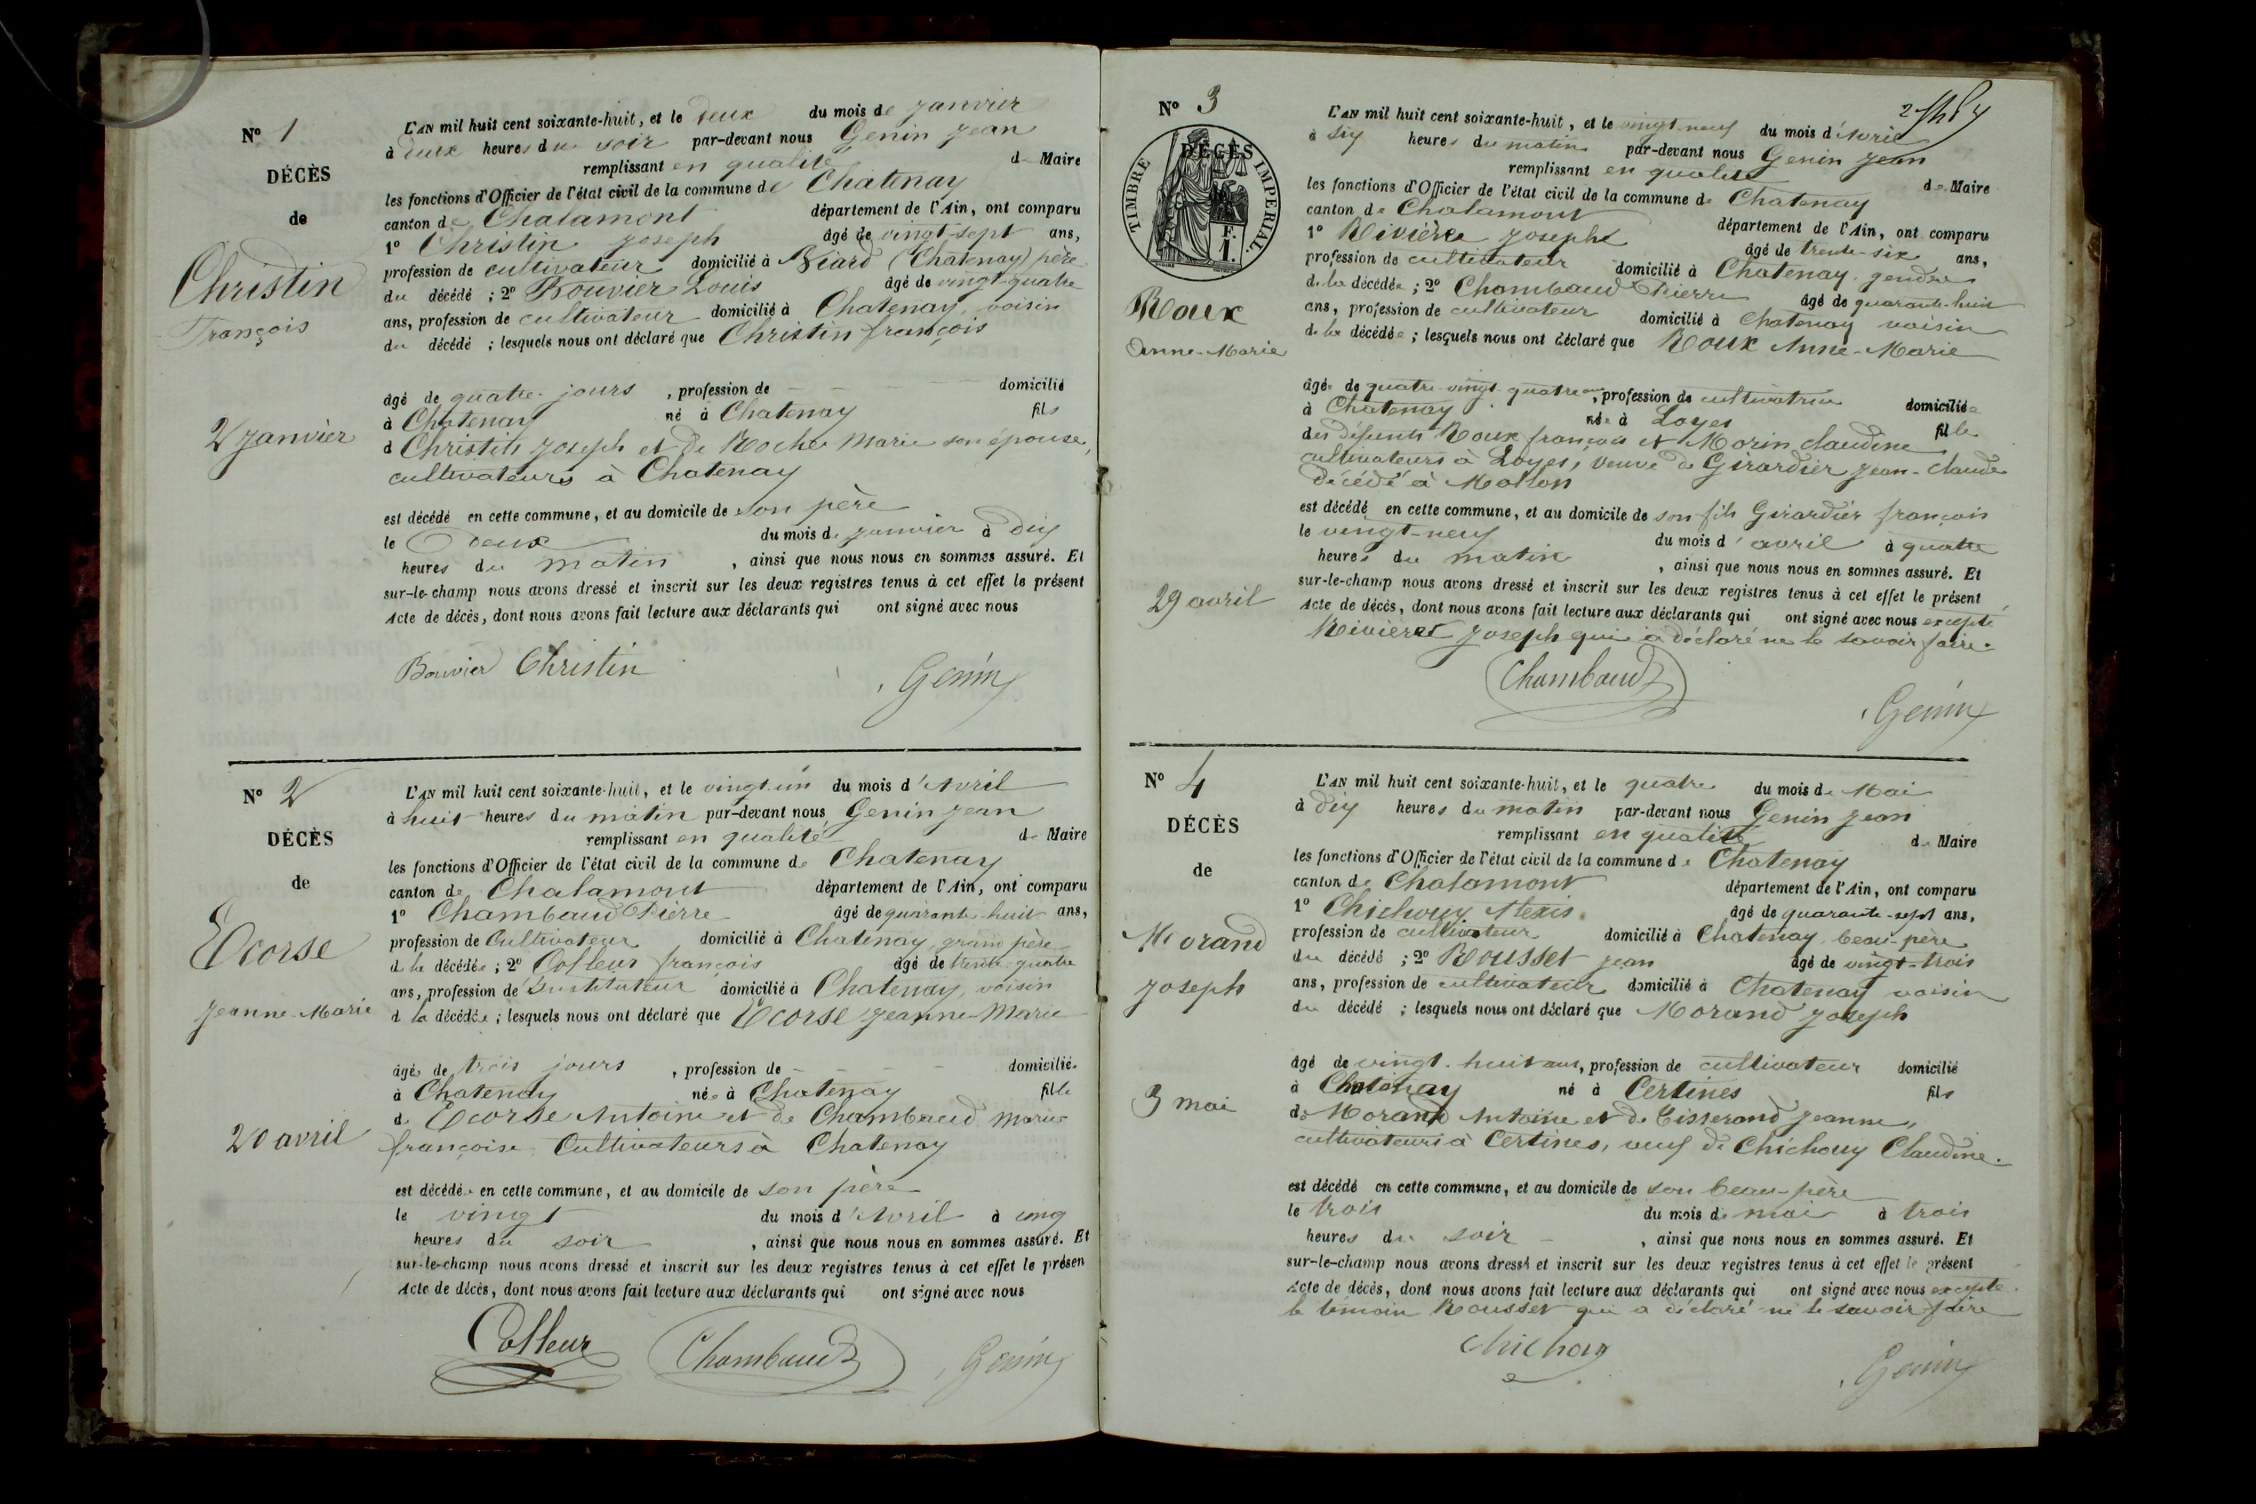 N° 1
DÉCÈS
de
Christin
François
2 janvier
L'AN mil huit cent soixante-huit, et le deux du mois de janvier
à deux heures du soir par-devant nous Genin Jean
remplissant en qualité de Maire
les fonctions d'Officier de l'état civil de la commune de Chatenay
canton de Chalamont département de l'Ain, ont comparu
1° Christin Joseph âgé de vingt-sept ans,
profession de cultivateur domicilié à (Chatenay) père
du décédé ; 2° Bouvier Louis âgé de vingt-quatre
ans, profession de cultivateur domicilié à Chatenay, voisin
du décédé ; lesquels nous ont déclaré que Christin françois
âgé de quatre jours , profession de domicilié
à Chatenay né à Chatenay fils
d Christin Joseph et de Roche Marie son épouse,
cultivateurs à Chatenay
est décédé en cette commune, et au domicile de son père
le deux du mois de janvier à dix
heures du matin , ainsi que nous nous en sommes assuré. Et
sur-le-champ nous avons dressé et inscrit sur les deux registres tenus à cet effet le présent
Acte de décès, dont nous avons fait lecture aux déclarants qui ont signé avec nous
Bouvier Christin Genin
N° 2
DÉCÈS
de
Ecorse
Jeanne-Marie
20 avril
L'AN mil huit cent soixante-huit, et le vingt-un du mois d'Avril
à huit heures du matin par-devant nous Genin Jean
remplissant en qualité de Maire
les fonctions d'Officier de l'état civil de la commune de Chatenay
canton de Chalamont département de l'Ain, ont comparu
1° Chambaud Pierre âgé de quarante-huit ans,
profession de Cultivateur domicilié à Chatenay, grand père
de la décédée ; 2° Colleur françois âgé de trente-quatre
ans, profession de Instituteur domicilié à Chatenay, voisin
d la décédée ; lesquels nous ont déclaré que Ecorse Jeanne-Marie
âgée de trois jours , profession de domiciliée
à Chatenay née à Chatenay fille
de Ecorse Antoine et de Chambaud Marie
françoise Cultivateurs à Chatenay
est décédée en cette commune, et au domicile de son père
le vingt du mois d'Avril à cinq
heures du soir , ainsi que nous nous en sommes assuré. Et
sur-le-champ nous avons dressé et inscrit sur les deux registres tenus à cet effet le présen
Acte de décès, dont nous avons fait lecture aux déclarants qui ont signé avec nous
Colleur Chambaud Genin
N° 3
DÉCÈS
TIMBRE IMPÉRIAL
F.
1.
Roux
Anne-Marie
29 avril
L'AN mil huit cent soixante-huit, et le vingt-neuf du mois d'Avril
à six heures du matin par-devant nous Genin Jean
remplissant en qualité de Maire
les fonctions d'Officier de l'état civil de la commune de Chatenay
canton de Chalamont département de l'Ain, ont comparu
1° Rivière Joseph âgé de trente-six ans,
profession de cultivateur domicilié à Chatenay, gendre
de la décédée ; 2° Chambaud Pierre âgé de quarante-huit
ans, profession de cultivateur domicilié à Chatenay voisin
de la décédée ; lesquels nous ont déclaré que Roux Anne-Marie
âgée de quatre-vingt-quatre ans, profession de cultivatrice domiciliée
à Chatenay née à Loyes fille
des défunts Roux françois et Morin Claudine
cultivateurs à Loyes, veuve de Girardier Jean-Claude
décédé à Mollon
est décédé en cette commune, et au domicile de son fils Girardier françois
le vingt-neuf du mois d'avril à quatre
heures du matin , ainsi que nous nous en sommes assuré. Et
sur-le-champ nous avons dressé et inscrit sur les deux registres tenus à cet effet le présent
Acte de décès, dont nous avons fait lecture aux déclarants qui ont signé avec nous excepté
Rivière Joseph qui a déclaré ne le savoir faire.
Chambaud Genin
N° 4
DÉCÈS
de
Morand
Joseph
3 mai
L'AN mil huit cent soixante-huit, et le quatre du mois de Mai
à dix heures du matin par-devant nous Genin Jean
remplissant en qualité de Maire
les fonctions d'Officier de l'état civil de la commune de Chatenay
canton de Chalamont département de l'Ain, ont comparu
1° Chichouy Alexis âgé de quarante-sept ans,
profession de cultivateur domicilié à Chatenay beau-père
du décédé ; 2° Rousset Jean âgé de vingt-trois
ans, profession de cultivateur domicilié à Chatenay voisin
du décédé ; lesquels nous ont déclaré que Morand Joseph
âgé de vingt-huit ans, profession de cultivateur domicilié
à Chatenay né à Certines fils
de Morand Antoine et de Tisserand Jeanne,
cultivateurs à Certines, veuf de Chichouy Claudine.
est décédé en cette commune, et au domicile de son beau-père
le trois du mois de mai à trois
heures du soir , ainsi que nous nous en sommes assuré. Et
sur-le-champ nous avons dressé et inscrit sur les deux registres tenus à cet effet le présent
Acte de décès, dont nous avons fait lecture aux déclarants qui ont signé avec nous excepté
le témoin Rousset qui a déclaré ne le savoir faire
Chichouy Genin